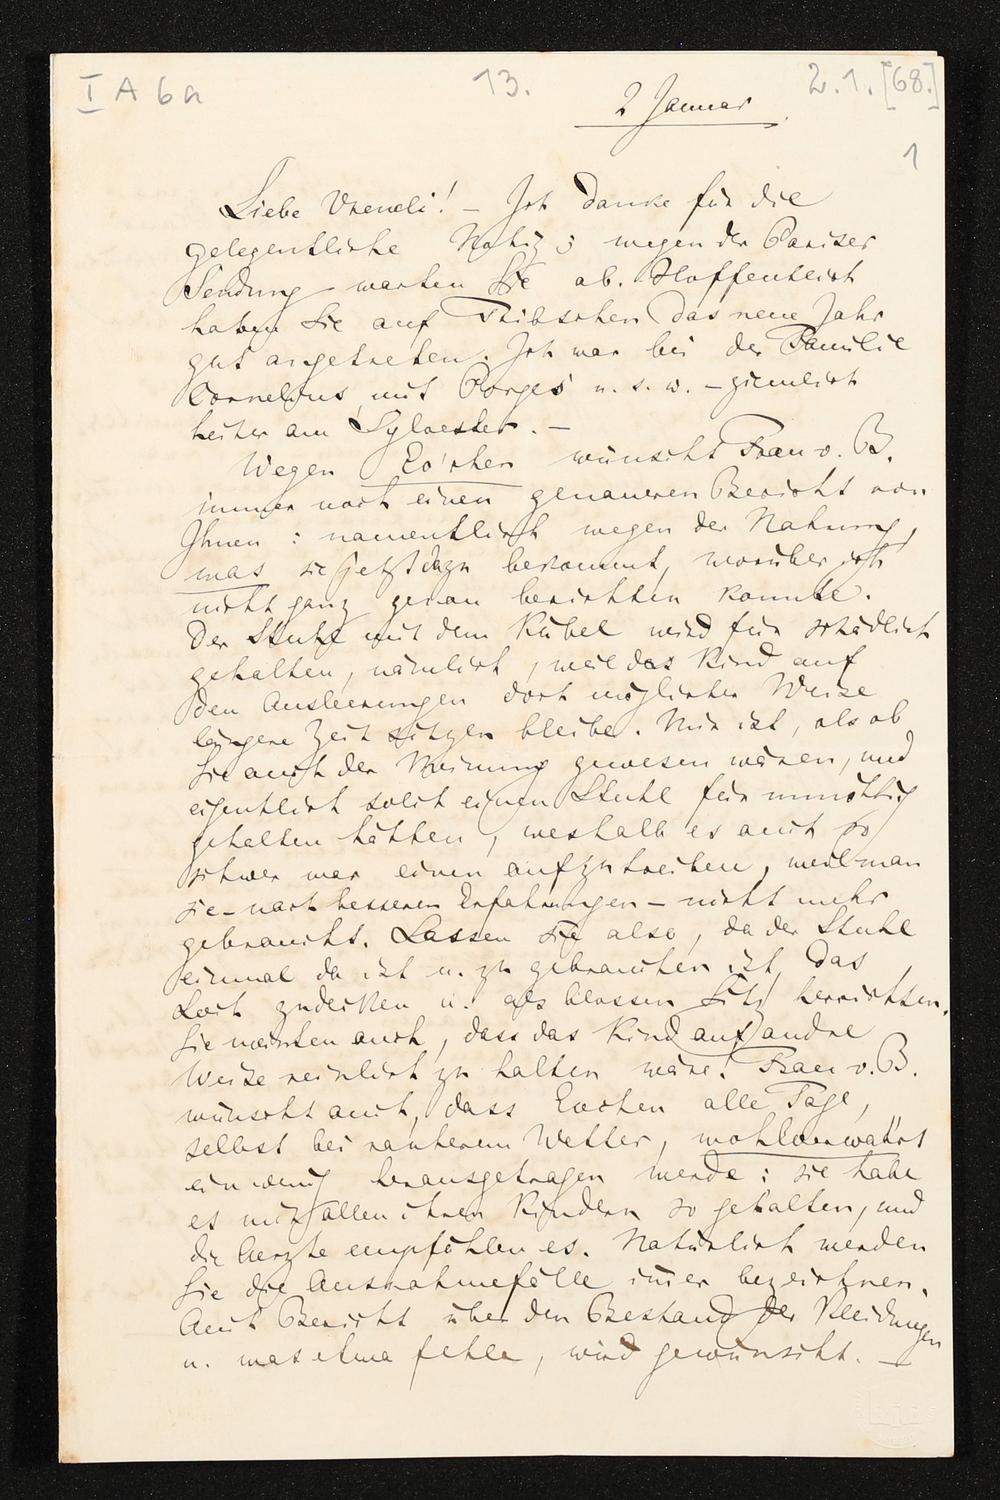 I A 6a
13.
2.1.[68.]
2 Januar
1
Liebe Vreneli! – Ich danke für die
gelegentliche Notiz; wegen der Pariser
Sendung warten Sie ab. Hoffentlich
haben Sie auf Tribschen das neue Jahr
gut angetreten. Ich war bei der Familie
Cornelius, mit Porges u. s. w. – ziemlich
heiter am Sylvester. –
Wegen Ev'chen wünscht Frau v. B.
immer noch einen genaueren Bericht von
Ihnen: namentlich wegen der Nahrung,
was sie jetzt dazu bekommt, worüber ich
nicht ganz genau berichten konnte.
Der Stuhl mit dem Kübel wird für schädlich
gehalten, nämlich, weil das Kind auf
den Ausleerungen dort möglicher Weise
längere Zeit sitzen bleibe. Mir ist, als ob
Sie auch der Meinung gewesen wären, und
eigentlich solch einen Stuhl für unnöthig
gehalten hätten, weshalb es auch so
schwer war einen aufzutreiben, weil man
sie – nach besseren Erfahrungen – nicht mehr
gebraucht. Lassen Sie also, da der Stuhl
einmal da ist u. zu gebrauchen ist, das
Loch zudecken u. als blossen Sitz herrichten.
Sie meinten auch, dass das Kind auf andre
Weise reinlich zu halten wäre. Frau v. B.
wünscht auch, dass Evchen alle Tage,
selbst bei rauherem Wetter, wohlverwahrt
ein wenig herausgetragen werde: sie habe
es mit allen ihren Kindern so gehalten, und
die Aerzte empföhlen es. Natürlich werden
Sie die Ausnahmefälle immer bezeichnen.
Auch Bericht über den Bestand der Kleidungen
u. was etwa fehle, wird gewünscht. –